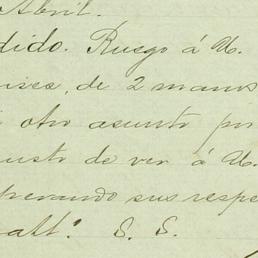 Abril.
dido. Ruego á U.
de 2 manos
otro asunto por
usto de ver á U.
perando sus respe
att.ᵒ S. S.